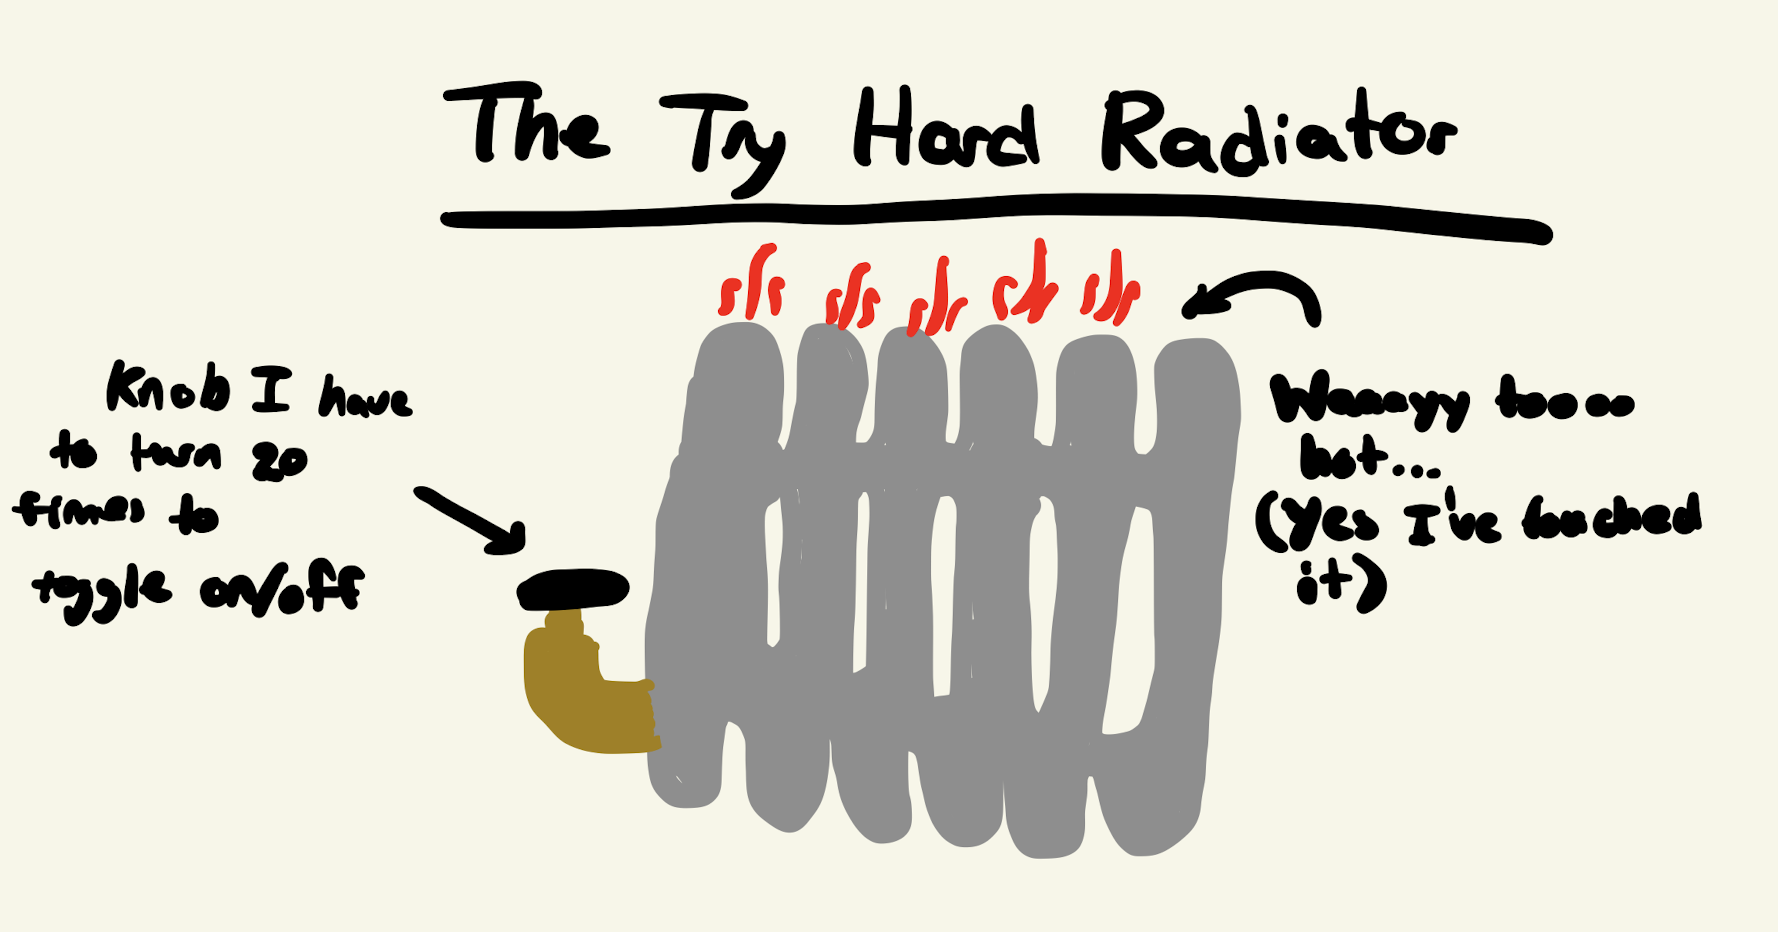 The Try Hard Radiator
Knob I have
to turn 20
times to
toggle on/off
Waaayy toooo
hot...
(Yes I've touched
it)